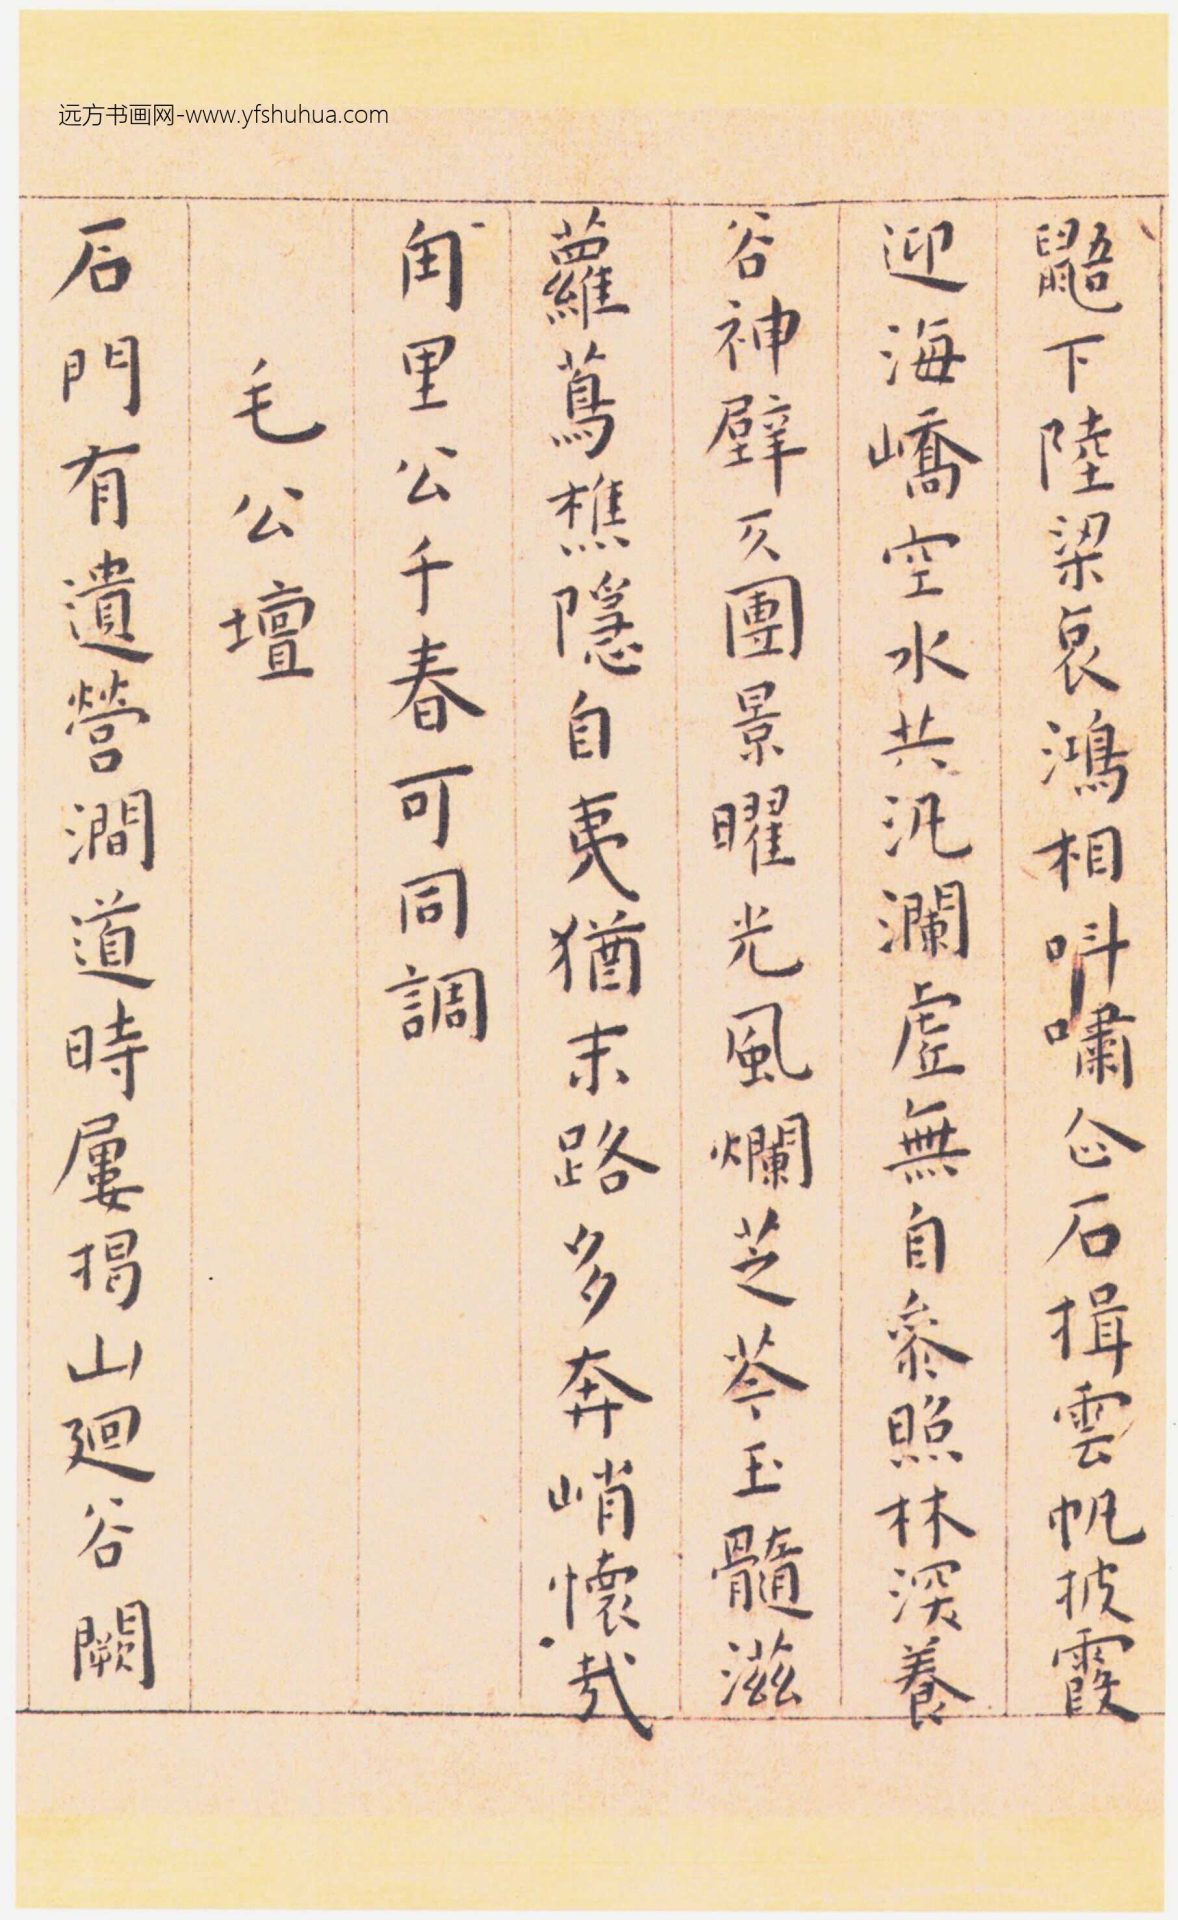 远方书画网-www.yfshuhua.com
鼯下陸梁哀鴻相叫嘯企石揖雲帆披霞
迎海嶠空水共汎瀾虛無自參照林深養
谷神壁仄團景曜光風爛芝苓玉髓滋
蘿蔦樵隱自夷猶末路多奔峭懷哉
甪里公千春可同調
毛公壇
石門有遺營澗道時屢揭山迴谷闕